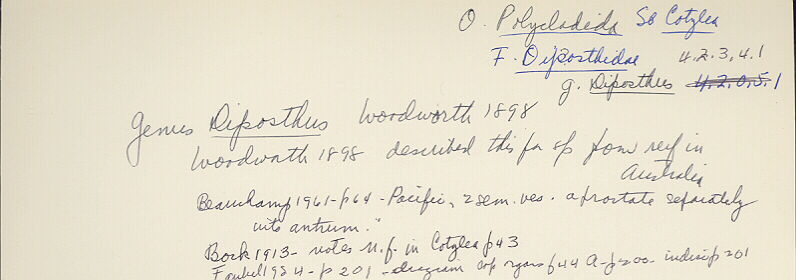 O. Polycladida SO Cotylea
F. Diposthidae 4.2.3.4.1
g. Diposthus 4.2.0.5.1
Genus Diposthus Woodworth 1898
Woodworth 1898 described this for sp from reef in
Australia
Beauchamp 1961-p64 - Pacific, 2 sem. ves. a prostate separately
into antrum."
Bock 1913- notes n.f. in Cotylea p43
Faubel 1984 - p 201 - diagram cop organs p 44 A - p200 - indiv p 201